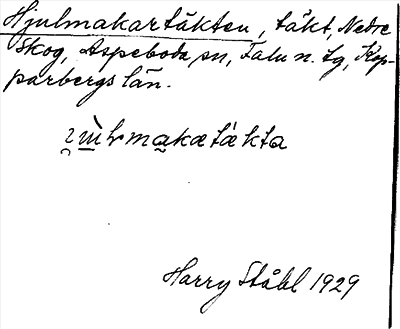 Hjulmakartäkten, täkt, Nedre
Skog, Aspeboda sn, Falu n. tg, Kop-
parbergs län.
Harry Ståhl 1929